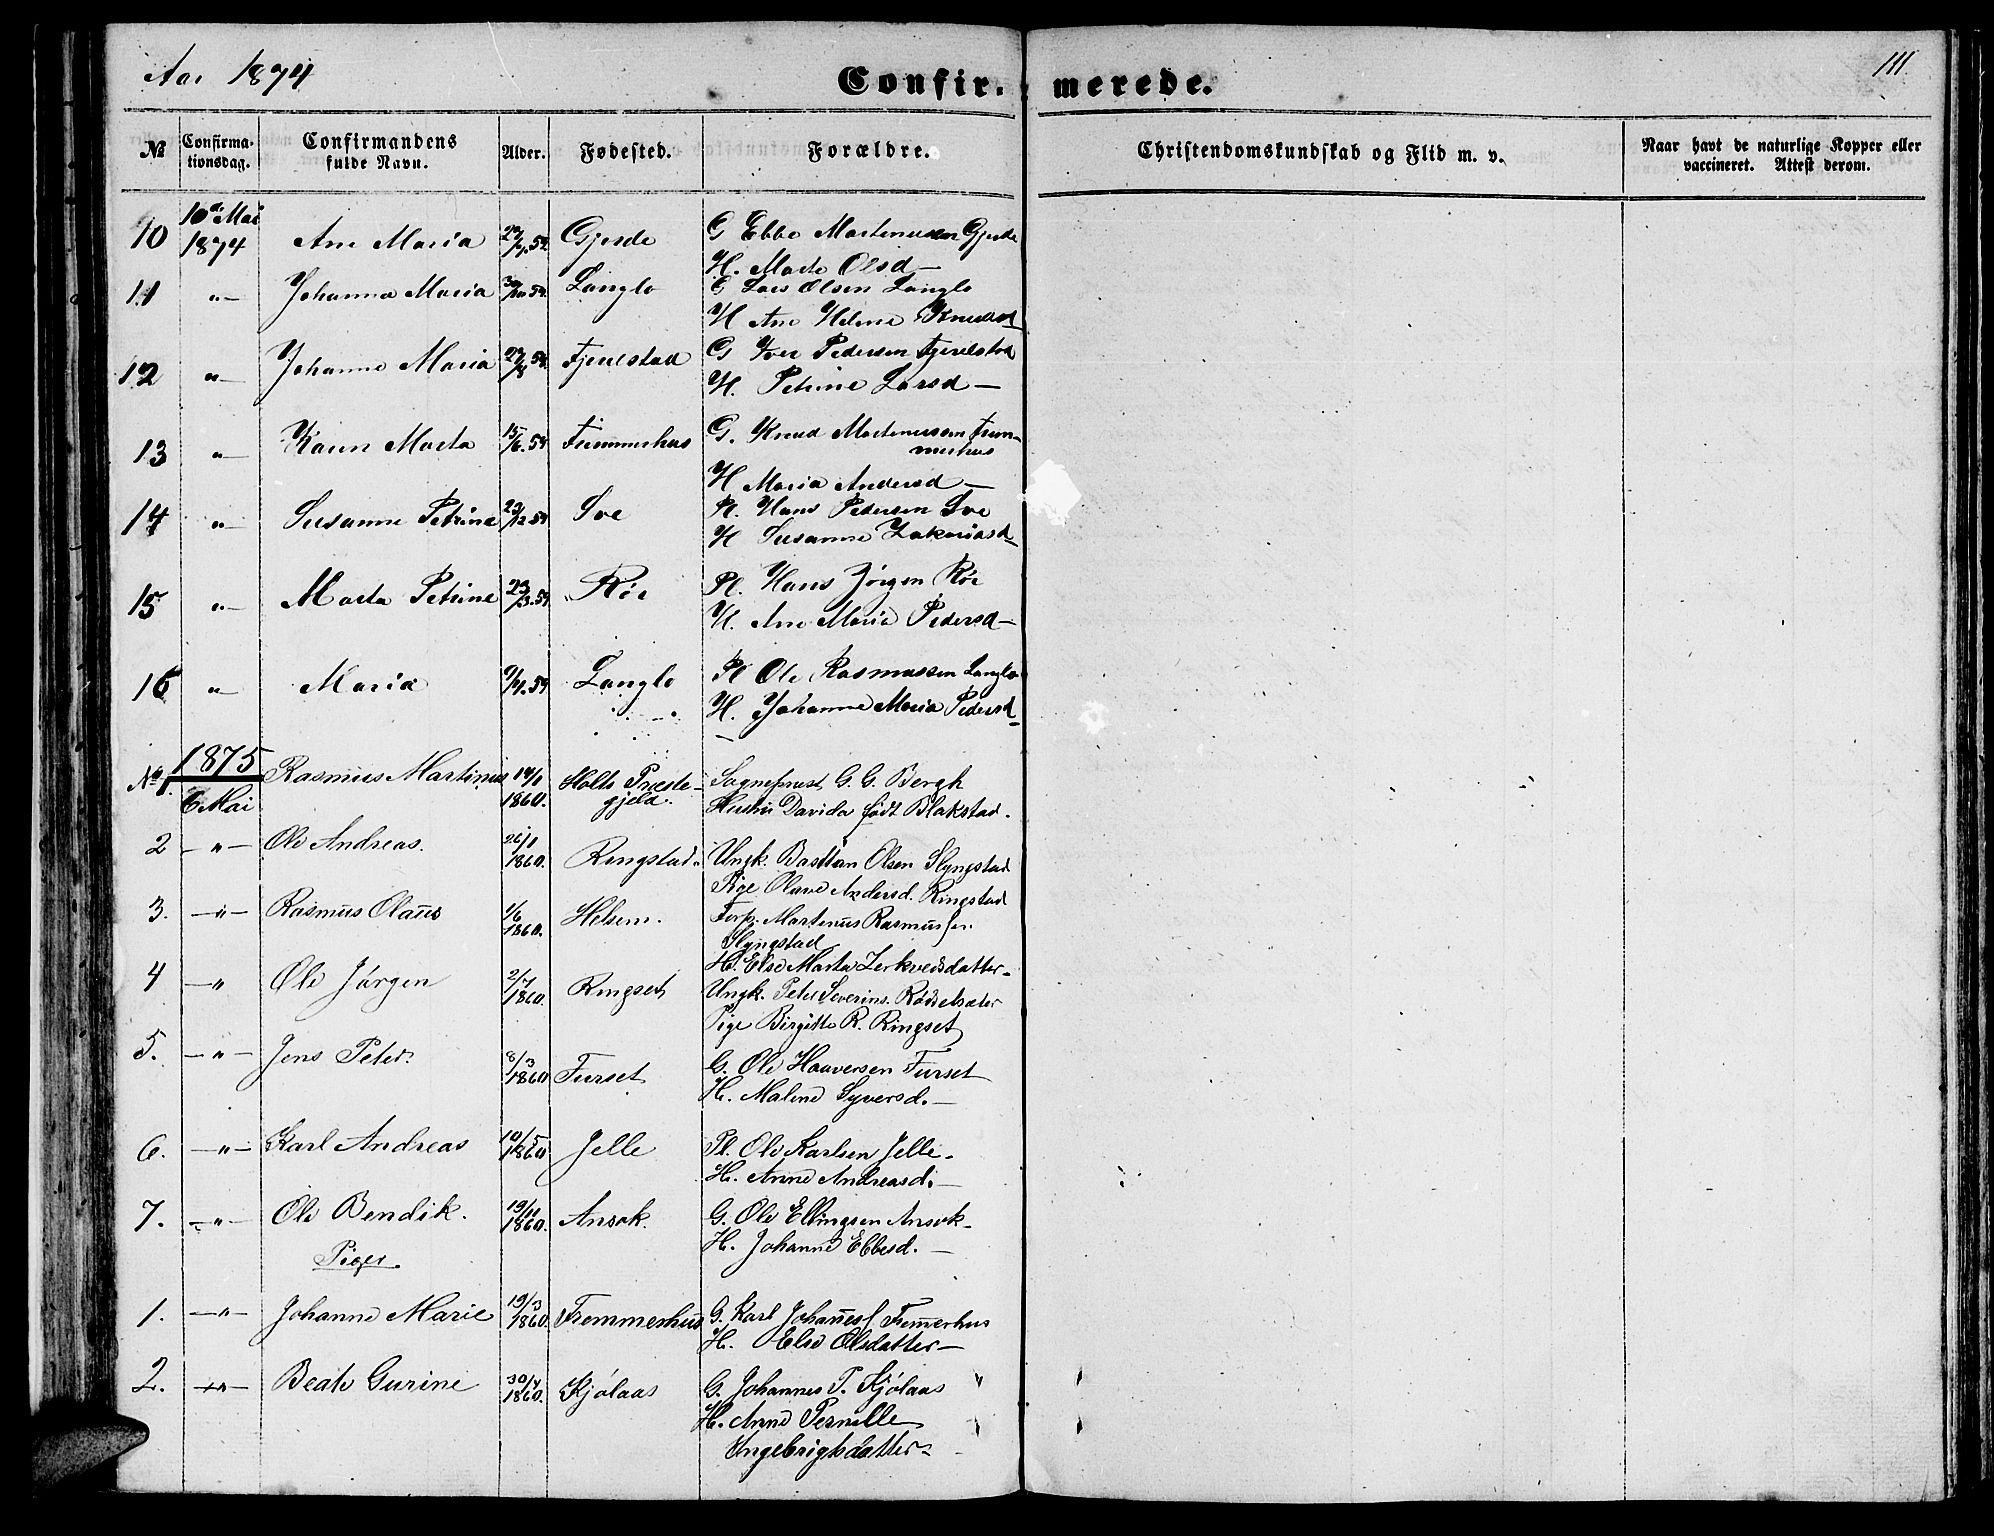 Aar 1874
Confir- merede.
111.
№ Confirma-tionsdag. Confirmandens fulde Navn. Alder. Fødested. Forældre. Christendomskundskab og Flid m. v. Naar havt de naturlige Kopper eller vaccineret. Attest derom.
10 10de Mai 1874 Ane Maria Gjerde G Ebbe Martenussen Gjerde
H. Marte Olsd —
11 "— Johanne Maria Langlo G Lars Olsen Langlo
H Ane Helene Knudsd
12 "— Johanne Maria Fjeldstad G Iver Pedersen Fjeldstad
H. Petrine Larsd —
13 "— Karen Marta 15/6.59 Fremmerhus G. Knud Martenussen Frem-
merhus
H Maria Andersd —
14 "— Susanne Petrine 23/12 59 Sve Pl. Hans Pedersen Sve
H Susanne Zakariasd —
15 "— Marta Petrine 23/3.59 Röe Pl. Hans Jörgen Röe
H. Ane Maria Pedersd —
16 "— Maria 9/4.59 Langlo Pl Ole Rasmussen Langlo
H. Johanne Maria Pedersd —
1875
№ 1. 6 Mai Rasmus Martinus 14/1 1860. Holts Præste-
gjeld. Sogneprest G. G. Bergh
Hustru Davida født Blakstad.
2 —"— Ole Andreas. 26/1 1860. Ringstad. Ungk. Bastian Olsen Slyngstad
Pige Olave Andersd. Ringstad
3. —"— Rasmus Olaus 1/6 1860. Helsem. Forp. Martenus Rasmussen
Slyngstad
H. Else Marta Zerkvedsdatter —
4 —"— Ole Jörgen 2/7 1860. Ringset Ungk. Peter Severins. Röddesæter
Pige Birgitte R. Ringset
5. —"— Jens Peter. 8/3 1860 Furset G. Ole Haaversen Furset
H. Malene Syversd. —
6. —"— Karl Andreas 10/5 1860 Jelle Pl. Ole Karlsen Jelle.
H. Anne Andreasd. —
7. —"— Ole Bendik. 19/11 1860. Ansok. G. Ole Ellingsen Ansok.
H. Johanne Ebbesd. —
Piger.
1. —"— Johanne Marie 19/3 1860. Fremmerhus G. Karl Johaness. Fremerhus
H. Else Olsdatter —
2. —"— Beate Gurine 30/4 1860. Kjölaas G. Johannes P. Kjölaas
H. Anne Pernille
Ingebrigtsdatter —